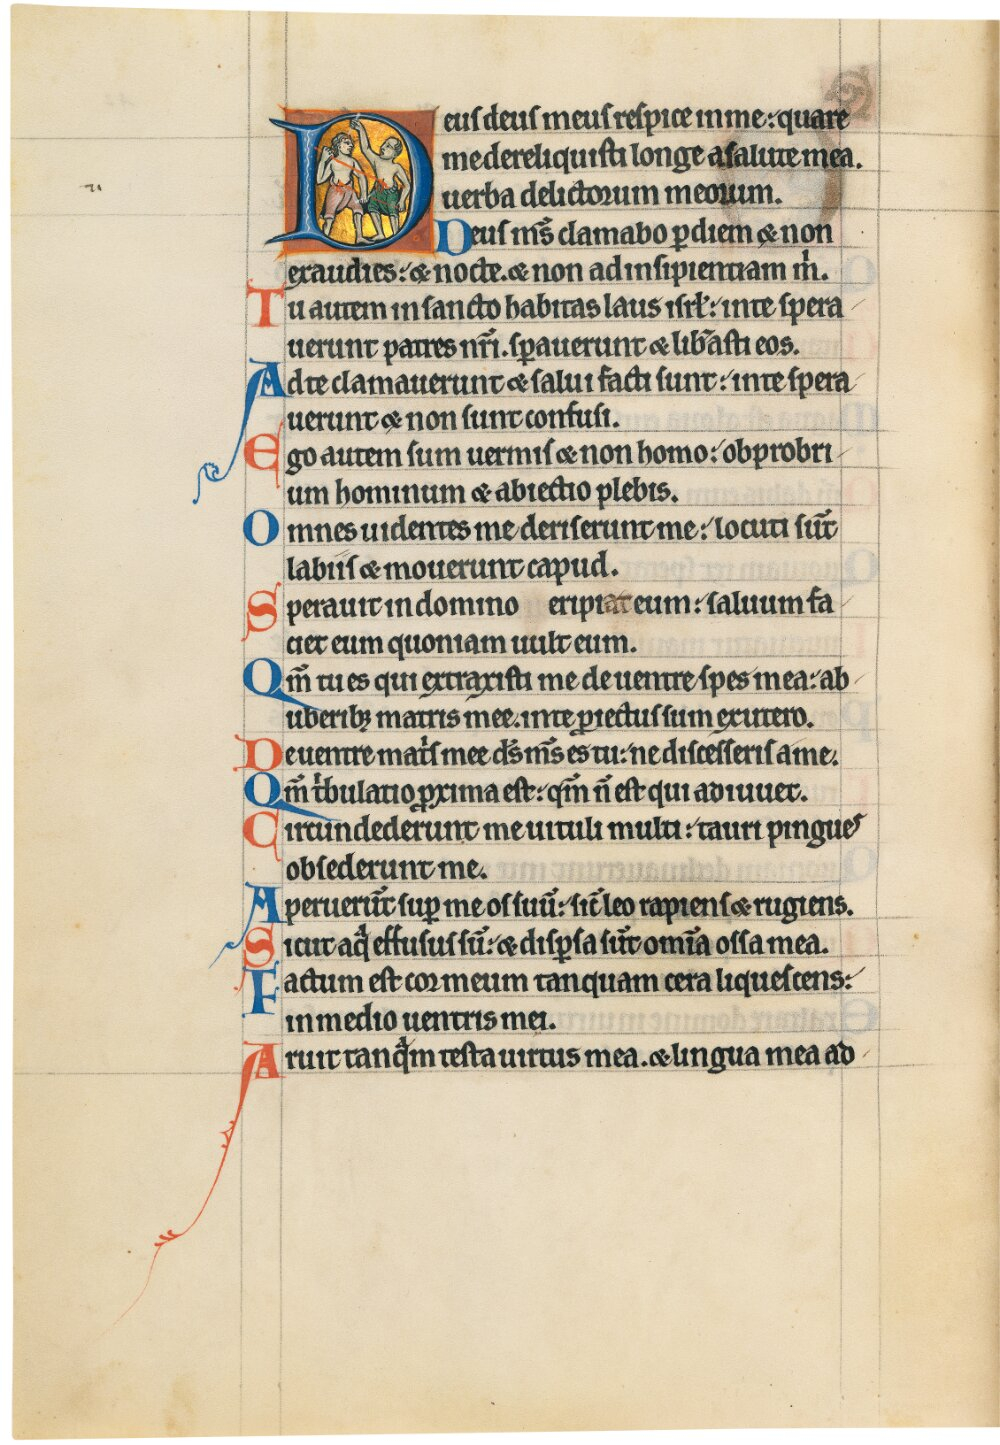 Deus deus meus respice in me: quare
me dereliquisti longe a salute mea.
uerba delictorum meorum.
Deus ms̄ clamabo ꝑ diem & non
exaudies: & nocte. & non ad insipientiam m̄.
Tu autem in sancto habitas laus isrł: in te spera
uerunt patres nr̄i. sꝑauerunt & lib̄asti eos.
Ad te clamauerunt & salui facti sunt: in te spera
uerunt & non sunt confusi.
Ego autem sum uermis & non homo: obprobri
um hominum & abiectio plebis.
Omnes uidentes me deriserunt me: locuti sūt
labiis & mouerunt capud.
Sperauit in domino eripiat eum: saluum fa
ciet eum quoniam uult eum.
Qm̄ tu es qui extraxisti me de uentre spes mea: ab
uberibꝫ matris mee. in te ꝓiectus sum ex utero.
De uentre mat̄s mee ds̄ ms̄ es tu: ne discesseris a me.
Qm̄ t̄bulatio ꝓxima est: qm̄ n̄ est qui adiuuet.
Circundederunt me uituli multi: tauri pingues
obsederunt me.
Aperuerūt suꝑ me os suū: sic̄ leo rapiens & rugiens.
Sicut aq̄ effusus sū: & disꝑsa sūt om̄ia ossa mea.
Factum est cor meum tanquam cera liquescens:
in medio uentris mei.
Aruit tanq̄m testa uirtus mea. & lingua mea ad